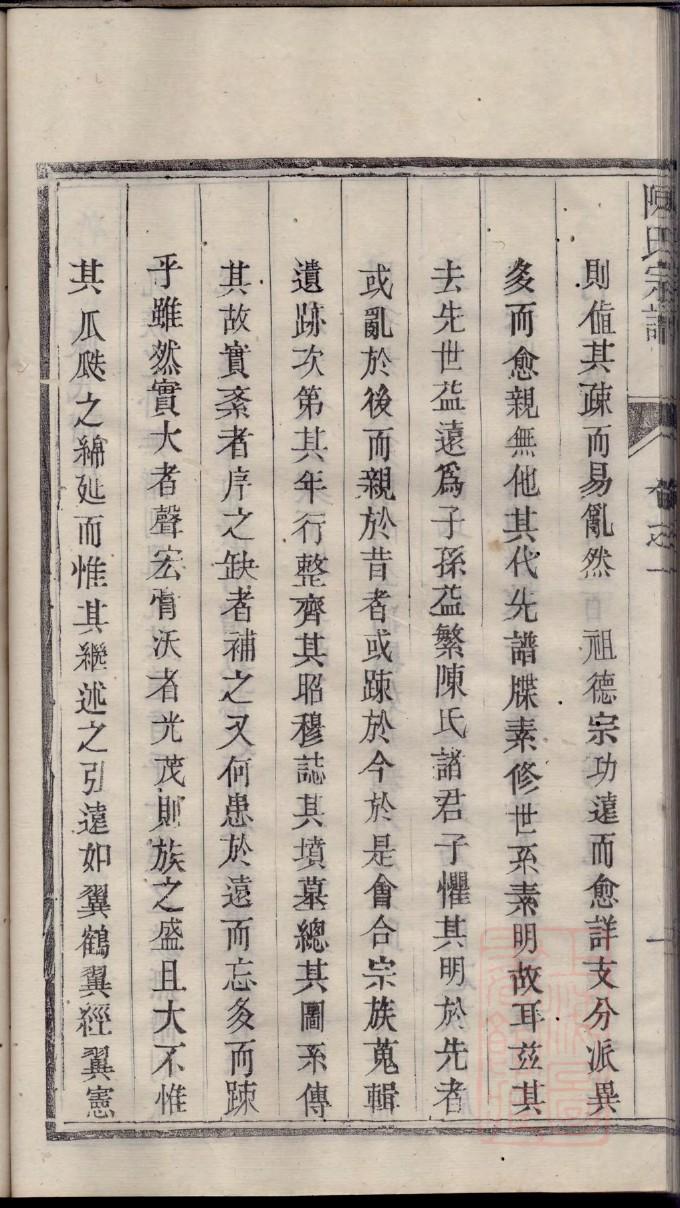 陳氏宗譜
卷之一
則值其疎而易亂然 祖德宗功遠而愈詳支分派異
多而愈親無他其代先譜牒素修世系素明故耳茲其
去先世益遠為子孫益繁陳氏諸君子懼其明於先者
或亂於後而親於昔者或踈於今於是會合宗族蒐輯
遺跡次第其年行整齊其昭穆誌其墳墓總其圖系傳
其故實紊者序之缺者補之又何患於遠而忘多而踈
乎雖然實大者聲宏膏沃者光茂則族之盛且大不惟
其瓜瓞之綿延而惟其繼述之引遠如翼鶴翼經翼憲